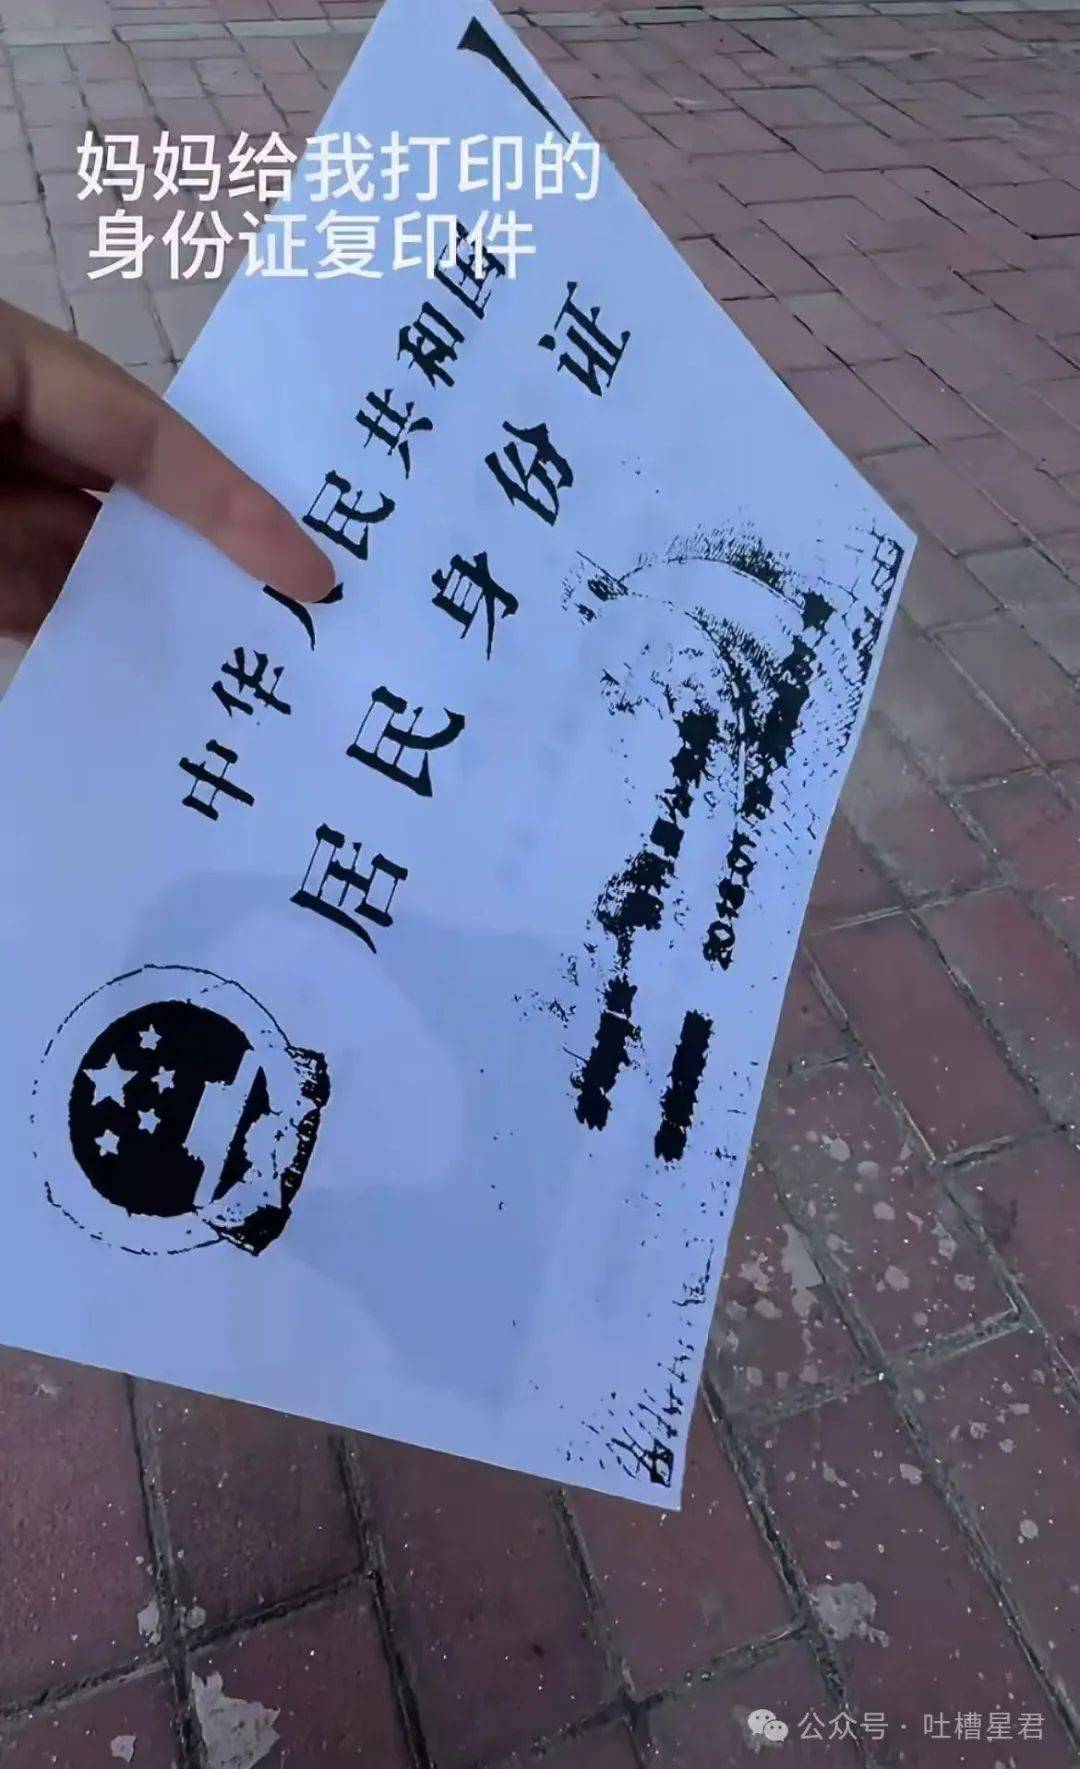 妈妈给我打印的
身份证复印件
中华人民共和国
居民身份证
公众号·吐槽星君